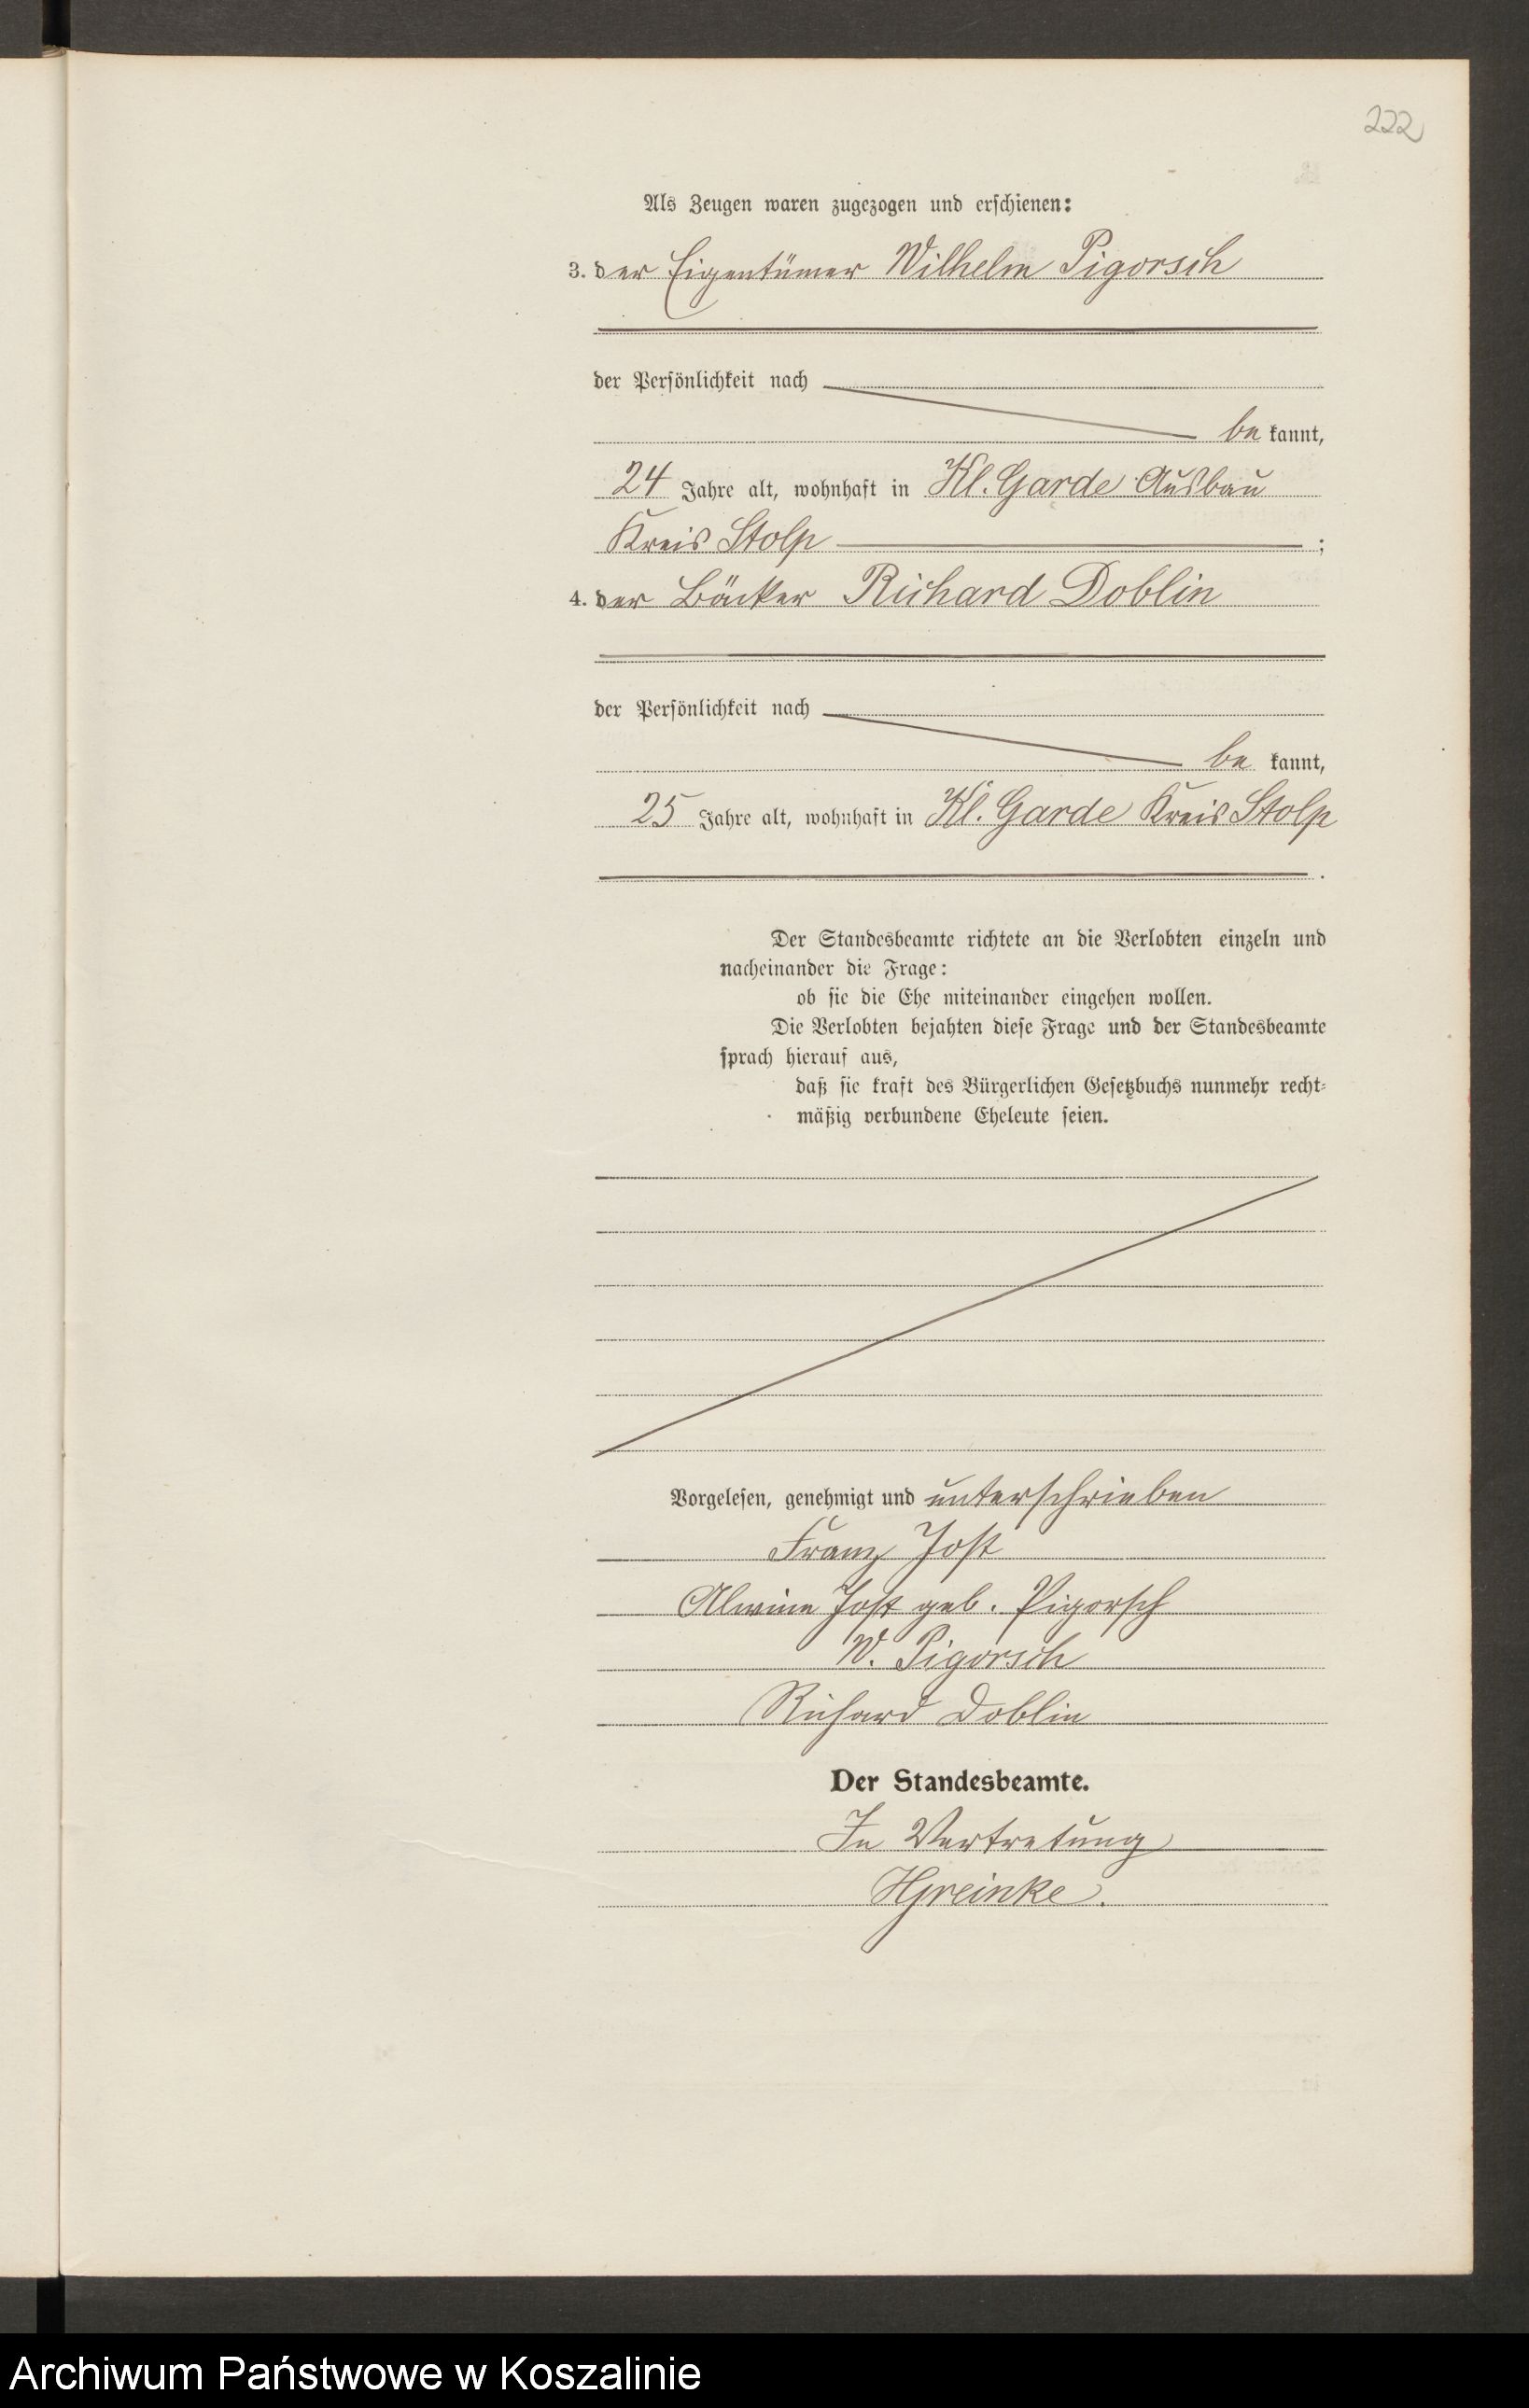 222
Als Zeugen waren zugezogen und erschienen:
3. der Eigentümer Wilhelm Pigorsch
der Persönlichkeit nach
be kannt,
24 Jahre alt, wohnhaft in Kl. Garde Ausbau
Kreis Stolp ;
4. der Bäcker Richard Doblin
der Persönlichkeit nach
be kannt,
25 Jahre alt, wohnhaft in Kl. Garde Kreis Stolp
.
Der Standesbeamte richtete an die Verlobten einzeln und
nacheinander die Frage:
ob sie die Ehe miteinander eingehen wollen.
Die Verlobten bejahten diese Frage und der Standesbeamte
sprach hierauf aus,
daß sie kraft des Bürgerlichen Gesetzbuchs nunmehr recht-
mäßig verbundene Eheleute seien.
Vorgelesen, genehmigt und unterschrieben
Franz Jost
Alwine Jost geb. Pigorsch
W. Pigorsch
Richard Doblin
Der Standesbeamte.
In Vertretung
HGreinke.
Archiwum Państwowe w Koszalinie